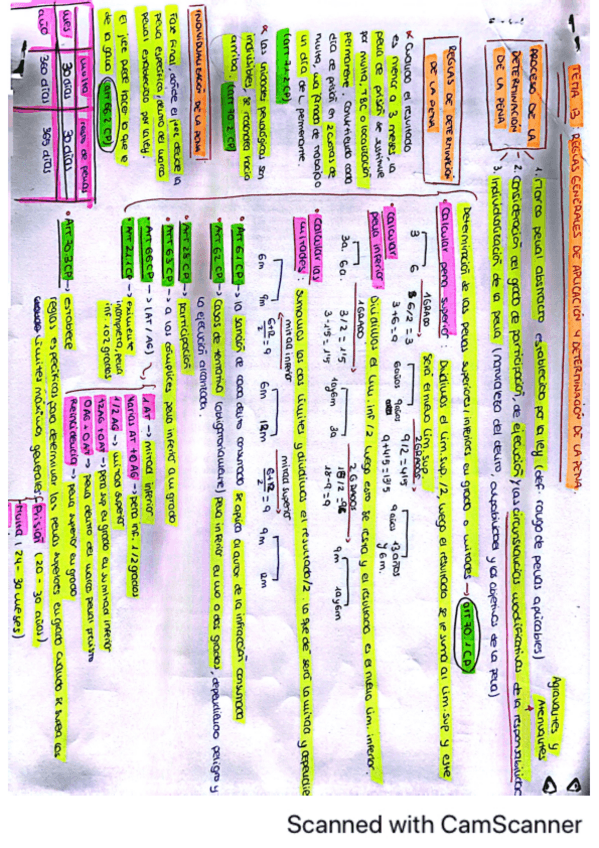 TEMA 13: REGLAS GENERALES DE APLICACIÓN Y DETERMINACIÓN DE LA PENA.
PROCESO DE LA
DETERMINACIÓN
DE LA PENA
1. Marco penal abstracto establecido por la ley (def. rango de penas aplicables)
Agravantes y
Atenuantes
2. Consideración del grado de participación, de ejecución y las circunstancias modificativas de la responsabilidad
3. Individualización de la pena (naturaleza del delito, culpabilidad y los objetivos de la pena)
REGLAS DE DETERMINACIÓN
DE LA PENA
Determinación de las penas superiores/inferiores en grado o mitades → art 70.1 CP
• Calcular pena superior: Dividimos el lím. sup /2, luego el resultado se le suma al lím. sup y este
será el nuevo lím. sup.
1 GRADO
2 GRADOS
3 6
6/2 = 3
3+6 = 9
6 años 9 años
9/2 = 4'5
9+4'5 = 13'5
9 años 13 años
y 6 m.
• Calcular
pena inferior:
Dividimos el lím. inf /2, luego esto se resta y el resultado es el nuevo lím. inferior.
1 GRADO
2 GRADOS
3a. 6a.
3/2 = 1'5
3-1'5 = 1'5
1a y 6m 3a
18/2 = 9
18-9 = 9
9m 1a y 6m
• Calcular las
mitades: Sumamos los dos límites y dividimos el resultado/2. Lo que dé será la mitad y dependie
mitad inferior
mitad superior
6m 9m
6+12/2 = 9
6m 12m
6+12/2 = 9
9m 12m
• Art 61 CP → la sanción de cada delito consumado se aplica al autor de la infracción consumada
• Art 62 CP → Casos de tentativa (obligatoriamente) pena inferior en uno o dos grados, dependiendo peligro y
la ejecución alcanzada.
• Art 28 CP → participación
• Art 63 CP → a los cómplices pena inferior a un grado
• Art 66 CP → (AT / AG)
• Art 21 CP → eximente
incompleta, pena
inf. 1 o 2 grados
1 AT → mitad inferior
Varias AT + 0 AG → pena inf. 1/2 grados
1/2 AG → mitad superior
+2 AG + 0 AT → pena sup en grado en su mitad inferior
0 AG + 0 AT → pena dentro del marco penal previsto
Reincidencia → pena superior en grado
• Art 70.3 CP → establece
reglas específicas para determinar las penas superiores en grado cuando se superan los
límites máximos generales
Prisión (20 - 30 años)
Multa (24 - 30 meses)
* Cuando el resultado
es menor a 3 meses, la
pena de prisión se sustituye
por multa, TBC o localización
permanente, convirtiendo cada
día de prisión en 2 cuotas de
multa, una jornada de trabajo o
un día de L. permanente.
(art 71.2 CP)
* Las unidades penológicas son
indivisibles, se redondea hacia
arriba. (art 70.2 CP)
INDIVIDUALIZACIÓN DE LA PENA
Fase final, donde el juez decide la
pena específica, dentro del marco
penal establecido por la ley.
El juez puede hacer lo que le
de la gana (art 66.2 CP)
multa resto de penas
mes: 30 días 30 días
año 360 días 365 días
Scanned with CamScanner